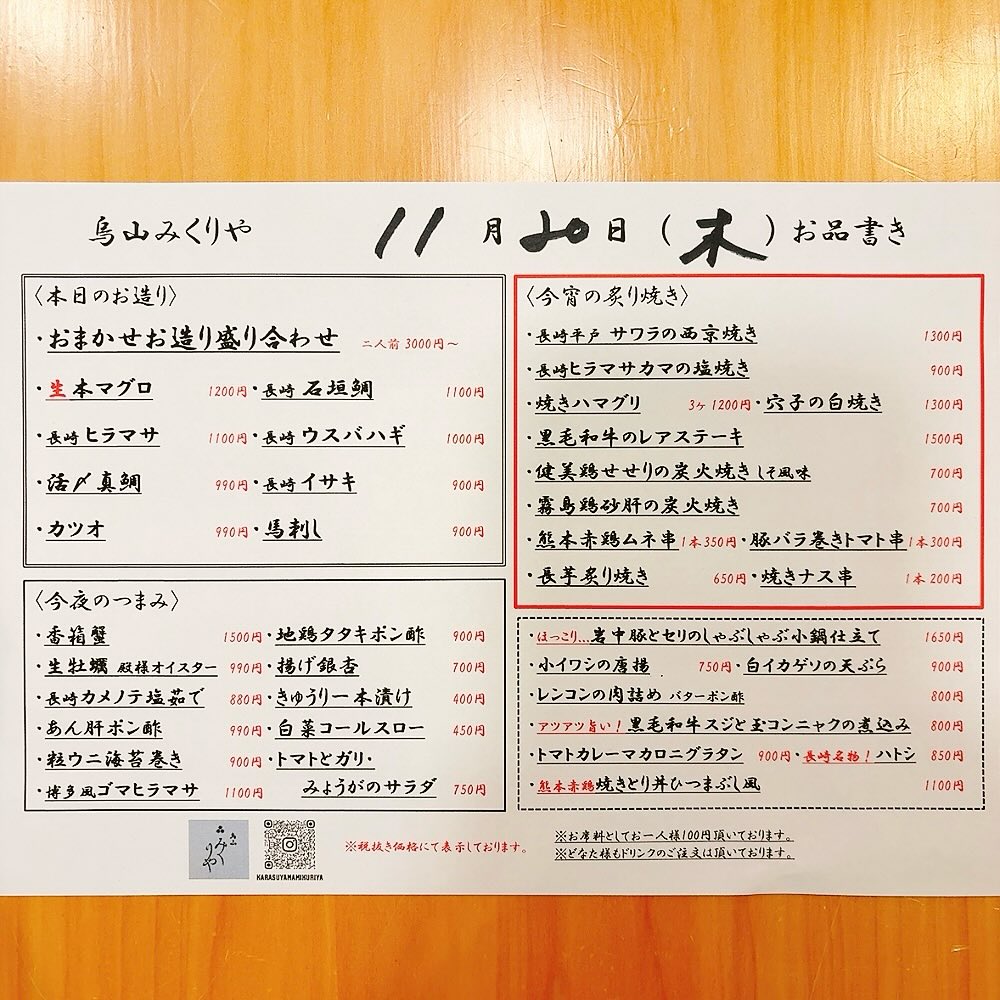 烏山みくりや 11月20日(木)お品書き
〈本日のお造り〉
・おまかせお造り盛り合わせ 二人前 3000円～
・生本マグロ 1200円・長崎 石垣鯛 1100円
・長崎 ヒラマサ 1100円・長崎 ウスバハギ 1000円
・活〆真鯛 990円・長崎 イサキ 900円
・カツオ 990円・馬刺し 900円
〈今夜のつまみ〉
・香箱蟹 1500円・地鶏タタキポン酢 900円
・生牡蠣 殿様オイスター 990円・揚げ銀杏 700円
・長崎カメノテ塩茹で 880円・きゅうり一本漬け 400円
・あん肝ポン酢 990円・白菜コールスロー 450円
・粒ウニ海苔巻き 900円・トマトとガリ・
・博多風ゴマヒラマサ 1100円 みょうがのサラダ 750円
〈今宵の炙り焼き〉
・長崎平戸 サワラの西京焼き 1300円
・長崎ヒラマサカマの塩焼き 900円
・焼きハマグリ 3ヶ 1200円・穴子の白焼き 1300円
・黒毛和牛のレアステーキ 1500円
・健美鶏せせりの炭火焼き しそ風味 700円
・霧島鶏砂肝の炭火焼き 700円
・熊本赤鶏ムネ串 1本350円・豚バラ巻きトマト串 1本300円
・長芋炙り焼き 650円・焼きナス串 1本 200円
・ほっこり…岩中豚とセリのしゃぶしゃぶ小鍋仕立て 1650円
・小イワシの唐揚 750円・白イカゲソの天ぷら 900円
・レンコンの肉詰め バターポン酢 800円
・アツアツ旨い！黒毛和牛スジと玉コンニャクの煮込み 800円
・トマトカレーマカロニグラタン 900円・長崎名物！ハトシ 850円
・熊本赤鶏焼きとり丼ひつまぶし風 1100円
みくりや
KARASUYAMAMIKURIYA
※税抜き価格にて表示しております。
※お席料としてお一人様100円頂いております。
※どなた様もドリンクのご注文は頂いております。